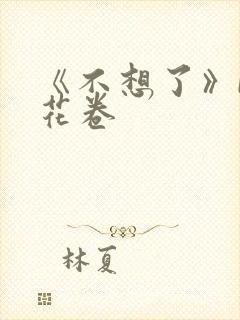 《不想了》
花卷
林夏